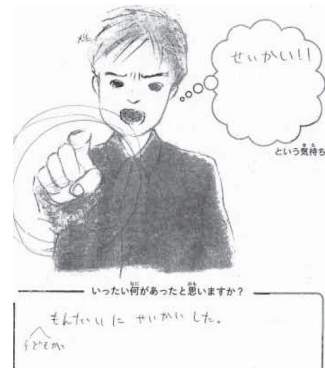 せいかい!!
という気持ち
いったい何があったと思いますか?
もんだいに せいかいした。
子どもが